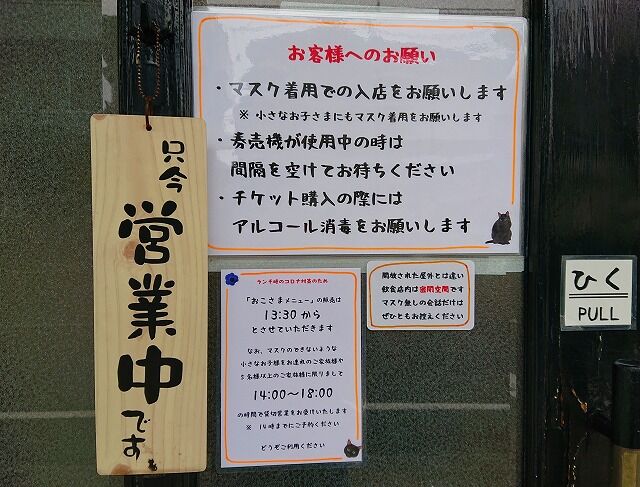 只今営業中です
お客様へのお願い
・マスク着用での入店をお願いします
※ 小さなお子さまにもマスク着用をお願いします
・券売機が使用中の時は
間隔を空けてお待ちください
・チケット購入の際には
アルコール消毒をお願いします
ランチ時のコロナ対策のため
「おこさまメニュー」の販売は
13:30から
とさせていただきます
なお、マスクのできないような
小さなお子様をお連れのご家族様や
5名様以上のご家族様に限りまして
14:00〜18:00
の時間で貸切営業をお受けいたします
※ 14時までにご予約ください
どうぞご利用ください
開放された屋外とは違い
飲食店内は密閉空間です
マスク無しの会話だけは
ぜひともお控えください
ひく
PULL